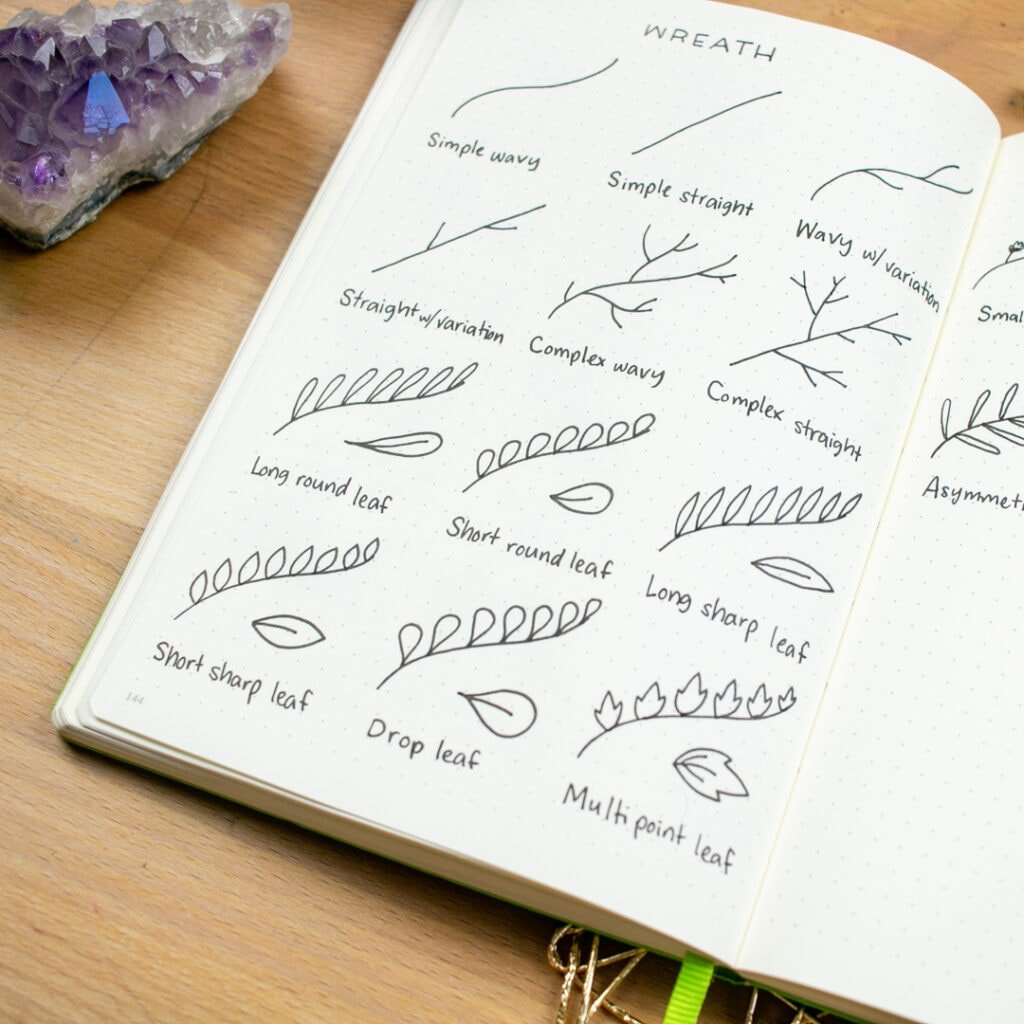 WREATH
Simple wavy
Simple straight
Wavy w/variation
Straight w/variation
Complex wavy
Complex straight
Long round leaf
Short round leaf
Long sharp leaf
Short sharp leaf
Drop leaf
Multi point leaf
144
Smal
Asymmet